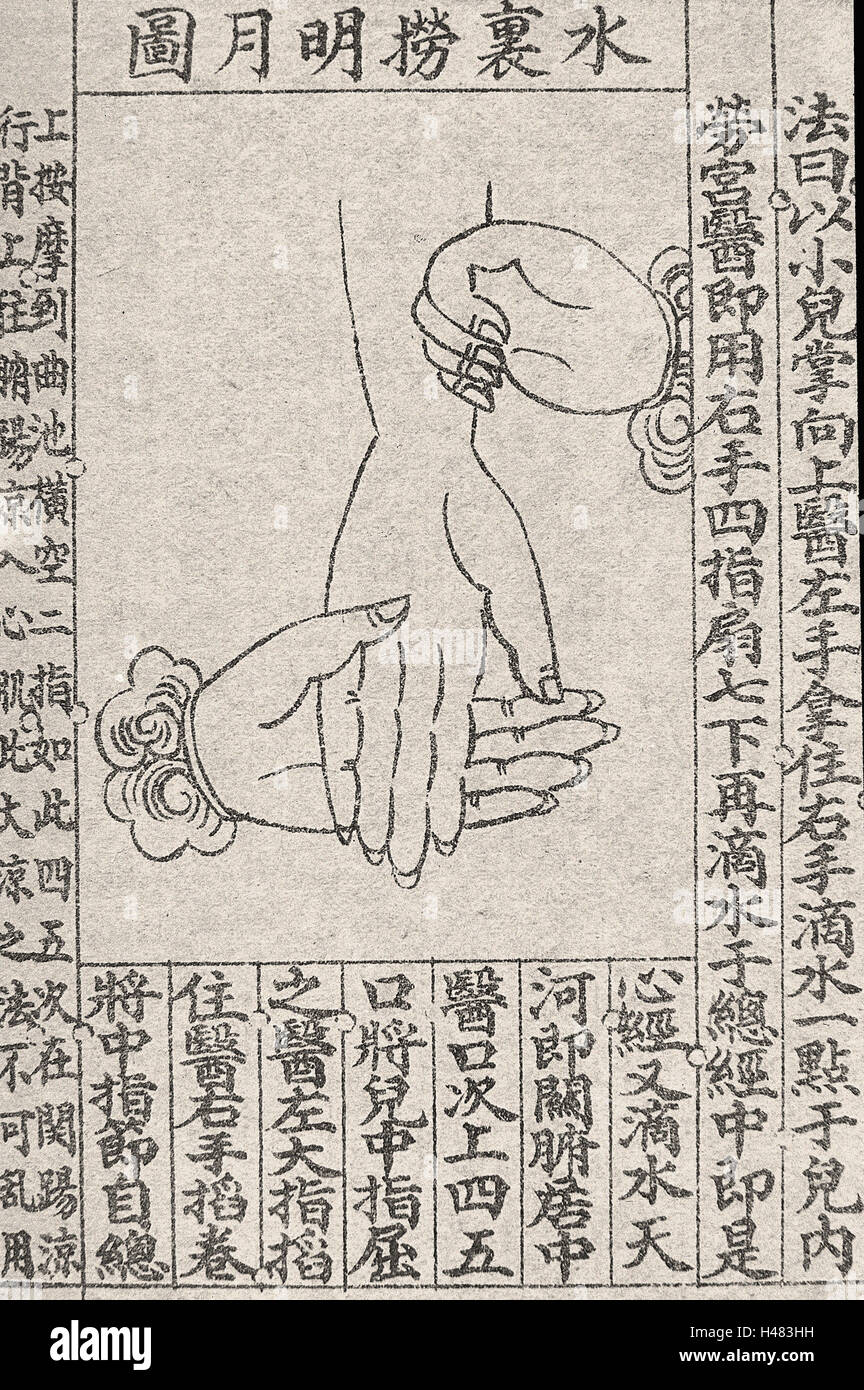 水裏撈明月圖
法曰以小兒掌向上醫左手拿住右手滴水一點于兒内
勞宮醫即用右手四指扇七下再滴水于總經中即是
心經又滴水天
河即關腑居中
醫口次上四五
口將兒中指屈
之醫左大指掐
住醫右手掐卷
將中指節自總
上按摩到曲池橫空二指如此四五次在関踢涼
行背上往
入心肌此大涼之法不可乱用
alamy
Image ID: H483HH
www.alamy.com